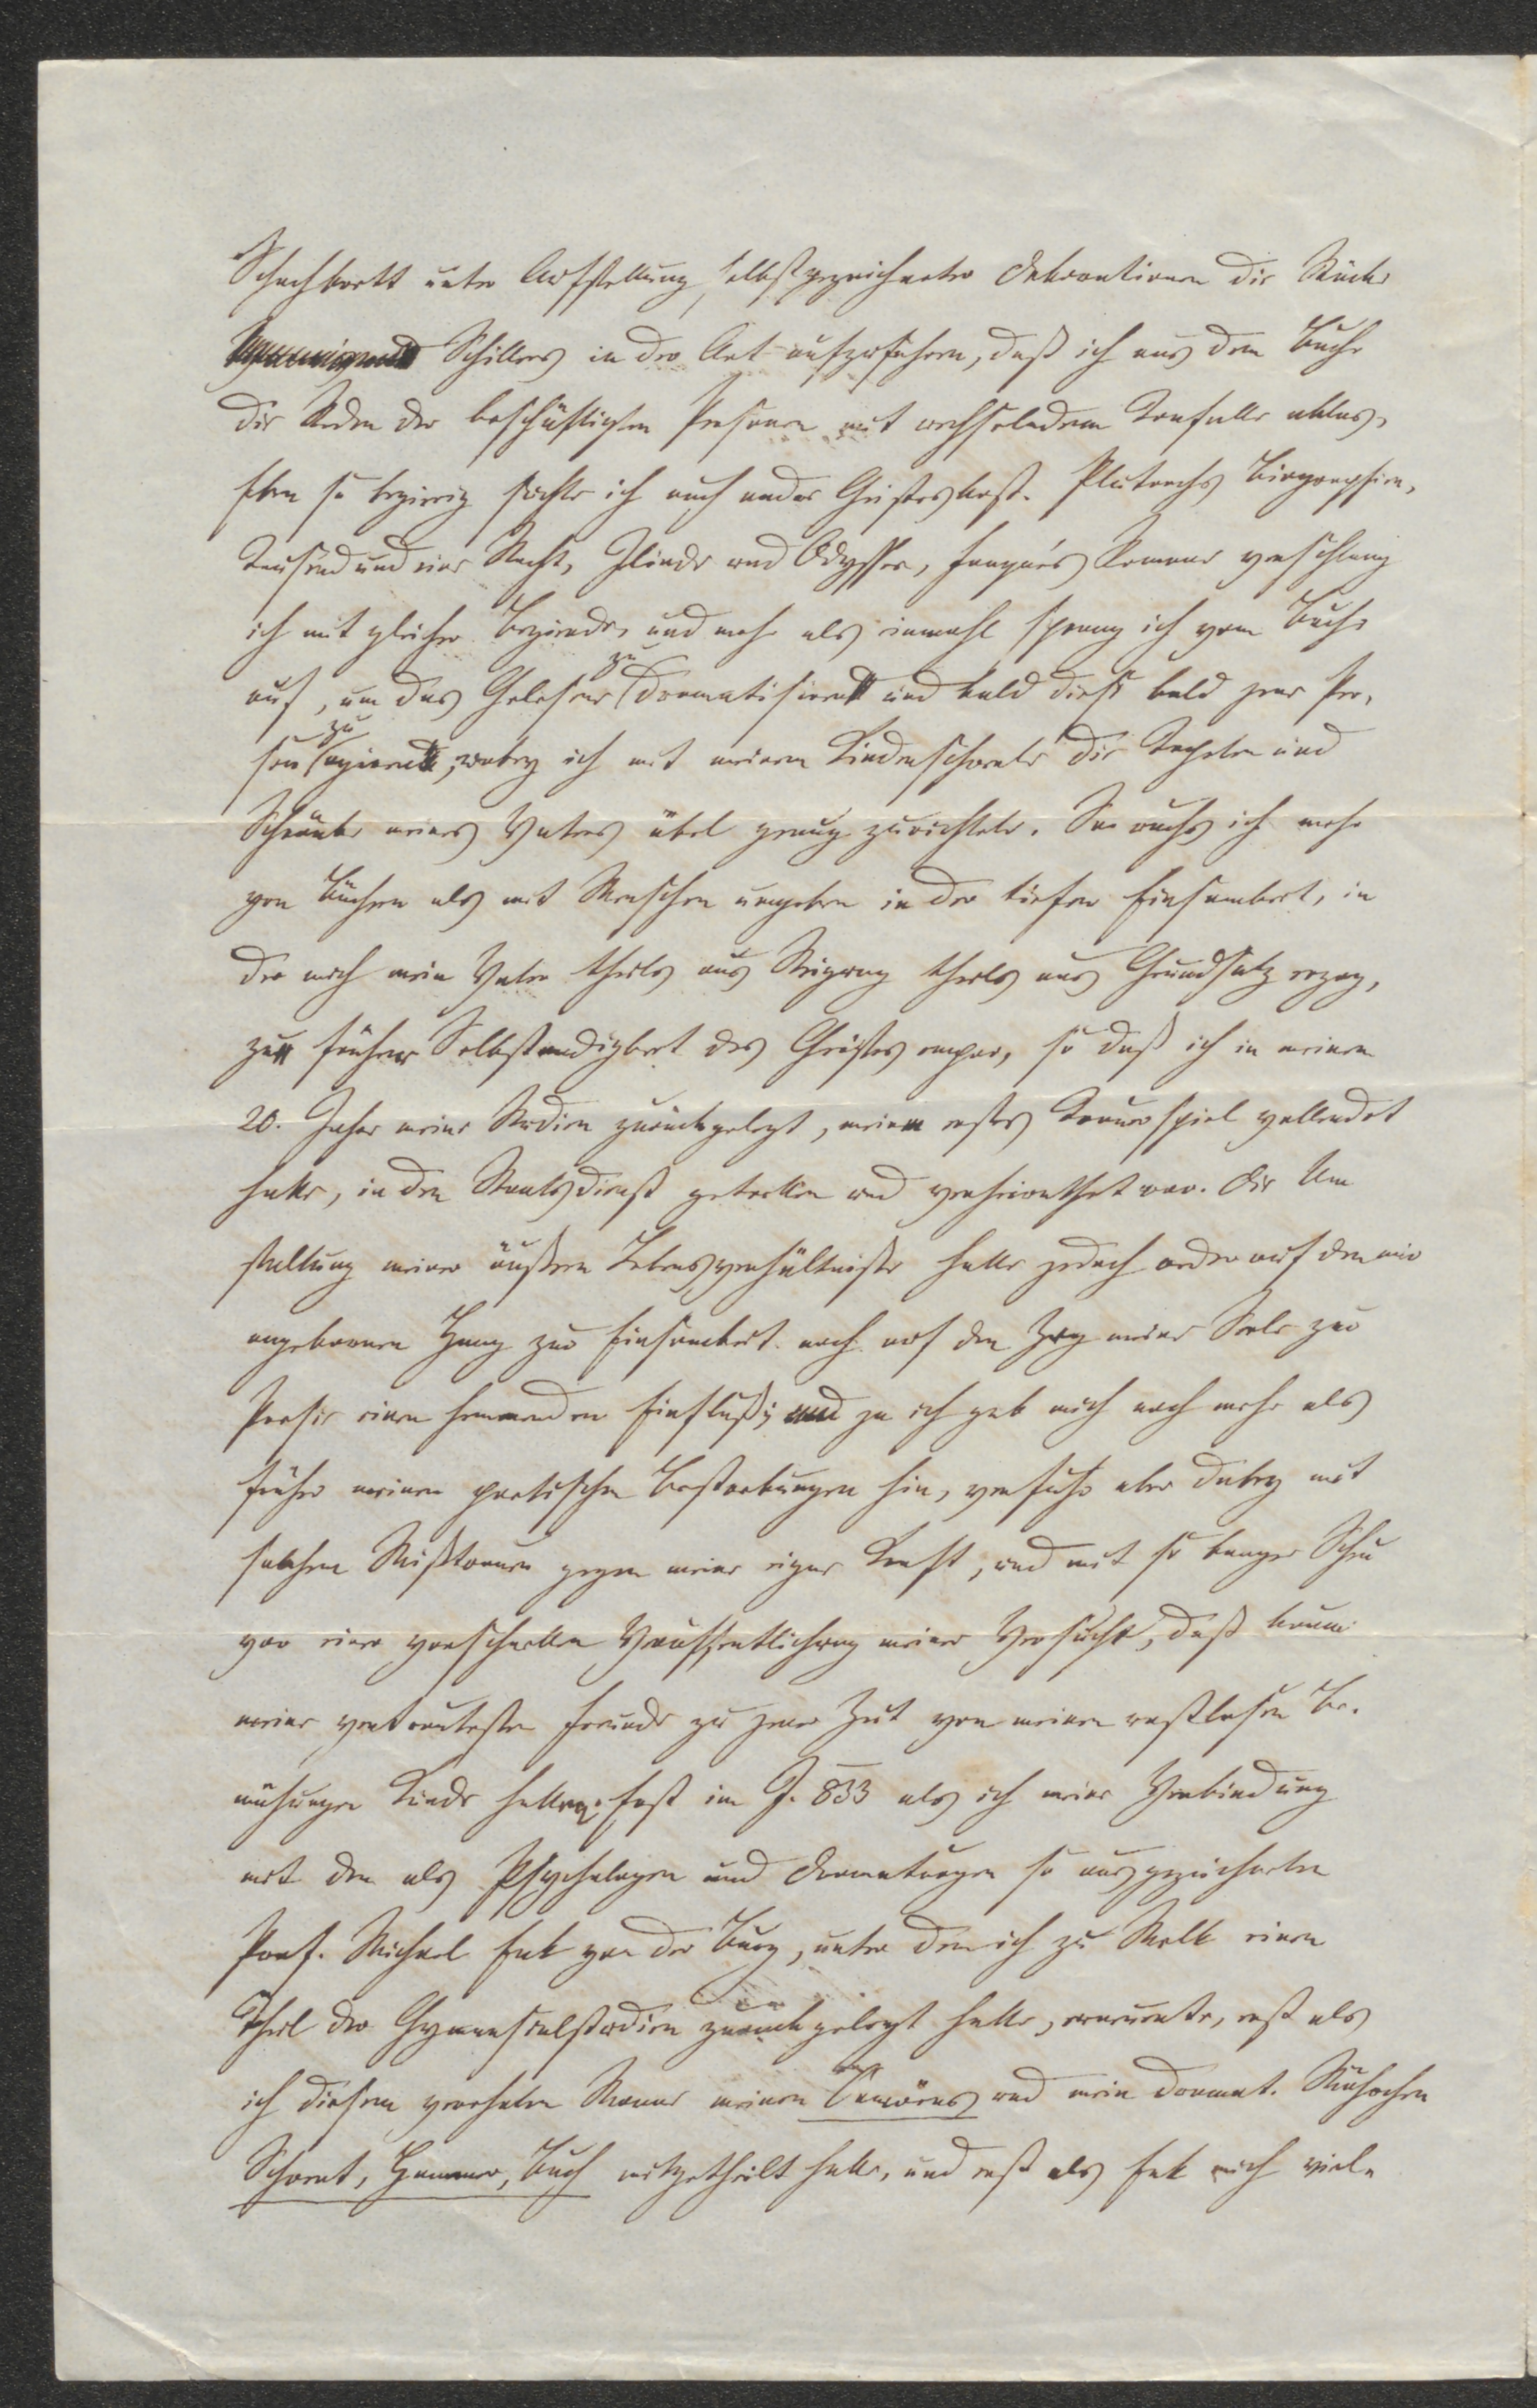 Schachbrett unter Aufstellung selbstgezeichneter Dekorationen die Stücke
Schillers in der Art aufzuführen, daß ich aus dem Buche
die Reden der beschäftigten Personen mit wechselndem Tonfalle ablas,
Eben so begierig suchte ich auch andre Geisteskost. Plutarchs Biographien,
Tausend und eine Nacht, Iliade und Odyssee, Fouqué's Romane verschlang
ich mit gleicher Begierde, und mehr als einmahl sprang ich vom Buche
auf, um das Gelesene zu dramatisiren und bald diese bald jene Per,
son zu agiren, wobey ich mit meinem Kinderschwerte die Tapeten und
Schränke meines Vaters übel genug zurichtete. So wuchs ich mehr
von Büchern als mit Menschen umgeben in der tiefen Einsamkeit, in
der mich mein Vater theils aus Neigung theils aus Grundsatz erzog,
zu früher Selbstandigkeit des Geistes empor, so daß ich in meinem
20. Jahre meine Studien zurückgelegt, mein erstes Trauerspiel vollendet
hatte, in den Staatsdienst getretten und verheirathet war. Die Um
staltung meiner äußern Lebensverhältniße hatte jedoch weder auf den mir
angebornen Hang zur Einsamkeit noch auf den Zug meiner Seele zur
Poesie einen hemmenden Einfluß; ja ich gab mich noch mehr als
früher meinen poetischen Bestrebungen hin, verfuhr aber dabey mit
solchem Mißtrauen gegen meine eigne Kraft, und mit so banger Scheu
vor einer vorschnellen Veröffentlichung meiner Versuche, daß kaum
meine vertrautesten Freunde zu jener Zeit von meinen rastlosen Be.
mühungen Kunde hatten. Erst im J. 833 als ich meine Verbindung
mit dem als Psychologen und Dramaturgen so ausgezeichneten
Prof. Michael Enk von der Burg, unter dem ich zu Melk einen
Theil der Gymnasialstudien zurückgelegt hatte, erneuerte, erst als
ich diesem verehrten Manne meinen Camöens und mein dramat. Mährchen
Schwert, Hammer, Buch mitgetheilt hatte, und erst als Enk mich viele